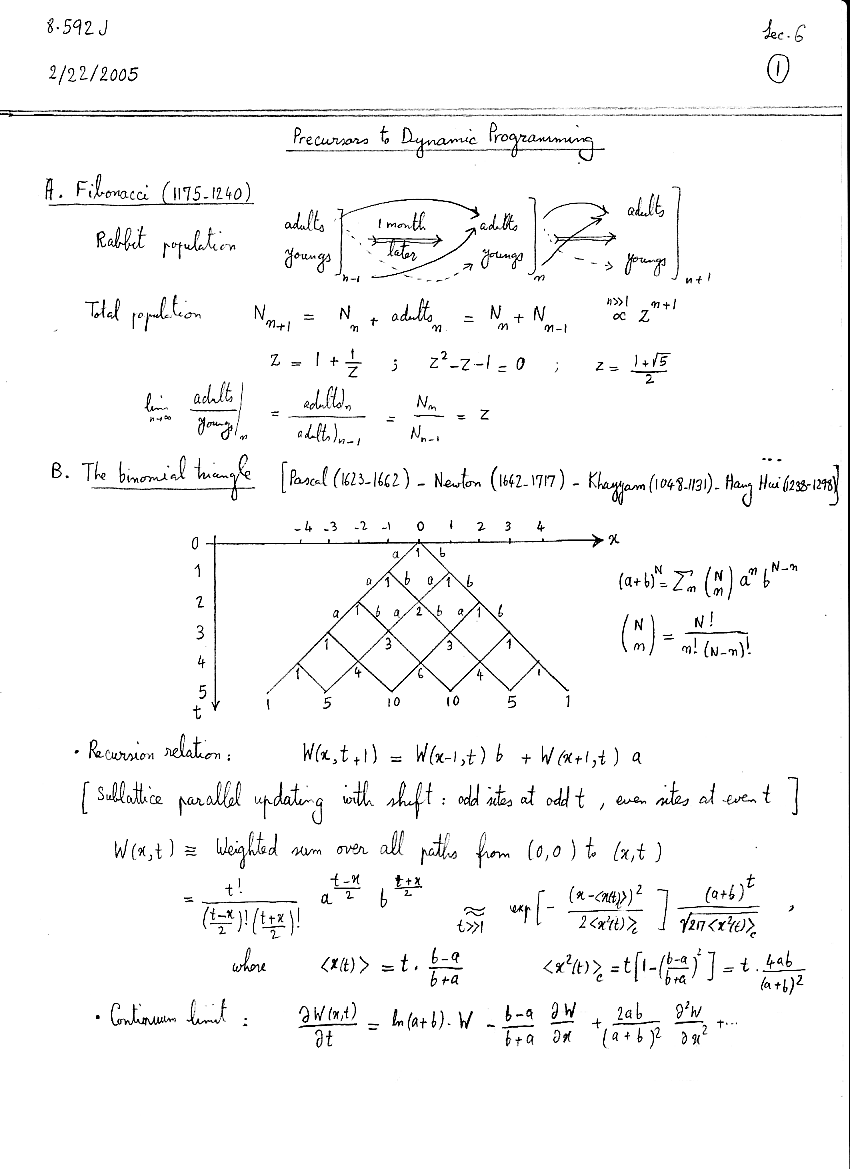 8.592J
Lec. 6
2/22/2005
①
Precursors to Dynamic Programming
A. Fibonacci (1175-1240)
Rabbit population
adults 1 month adults adults
youngs later youngs youngs
n-1 n n+1
Total population N_{n+1} = N_n + adults_n = N_n + N_{n-1} ∝^{n>>1} z^{n+1}
z = 1 + 1/z ; z² - z - 1 = 0 ; z = (1+√5)/2
lim_{n→∞} adults/youngs|_n = adults)_n / adults)_{n-1} = N_n / N_{n-1} = z
B. The binomial triangle [Pascal (1623-1662) - Newton (1642-1717) - Khayyam (1048-1131) - Hang Hui (1238-1298)]
-4 -3 -2 -1 0 1 2 3 4
0 x
a 1 b
1 a 1 b a 1 b
2 a 1 b a 2 b a 1 b
3 1 3 3 1
4 1 4 6 4 1
5 1 5 10 10 5 1
t
(a+b)^N = Σ_n (N n) a^n b^{N-n}
(N n) = N! / n! (N-n)!
• Recursion relation: W(x,t+1) = W(x-1,t) b + W(x+1,t) a
[Sublattice parallel updating with shift: odd sites at odd t, even sites at even t]
W(x,t) ≡ Weighted sum over all paths from (0,0) to (x,t)
= t! / ((t-x)/2)! ((t+x)/2)! a^{(t-x)/2} b^{(t+x)/2} ≈_{t>>1} exp[- (x-<x(t)>)² / 2<x²(t)>_c] (a+b)^t / √(2π<x²(t)>_c) ,
where <x(t)> = t · (b-a)/(b+a) <x²(t)>_c = t[1-((b-a)/(b+a))²] = t · 4ab/(a+b)²
• Continuum limit: ∂W(x,t)/∂t = ln(a+b)·W - (b-a)/(b+a) ∂W/∂x + 2ab/(a+b)² ∂²W/∂x² + ...